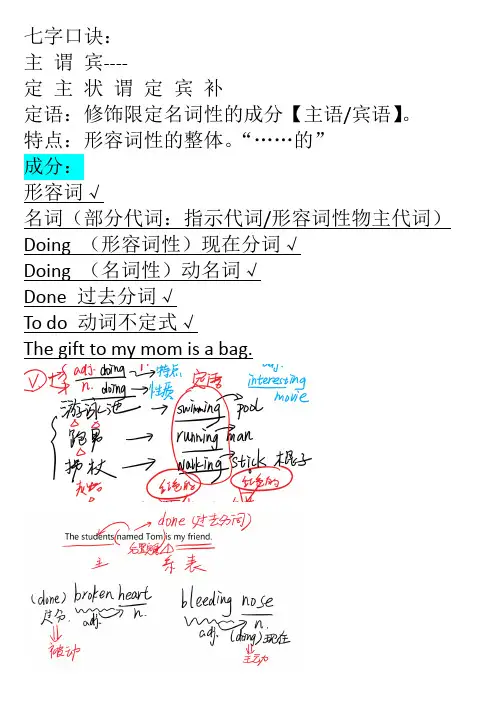 七字口诀：
主 谓 宾----
定 主 状 谓 定 宾 补
定语：修饰限定名词性的成分【主语/宾语】。
特点：形容词性的整体。“……的”
成分：
形容词√
名词（部分代词：指示代词/形容词性物主代词）
Doing （形容词性）现在分词√
Doing （名词性）动名词√
Done 过去分词√
To do 动词不定式√
The gift to my mom is a bag.
V
adj. doing → 特点
n. doing → 性质
定语
adj.
interesting
movie
游泳池 → swimming pool
跑男 → running man
拐杖 → walking stick 棍子
红色的
红色的
done (过去分词)
The students named Tom is my friend.
后置定语
主 系 表
(done) broken heart
过分. adj. n.
被动
bleeding nose
adj. n.
(doing) 现在
主动